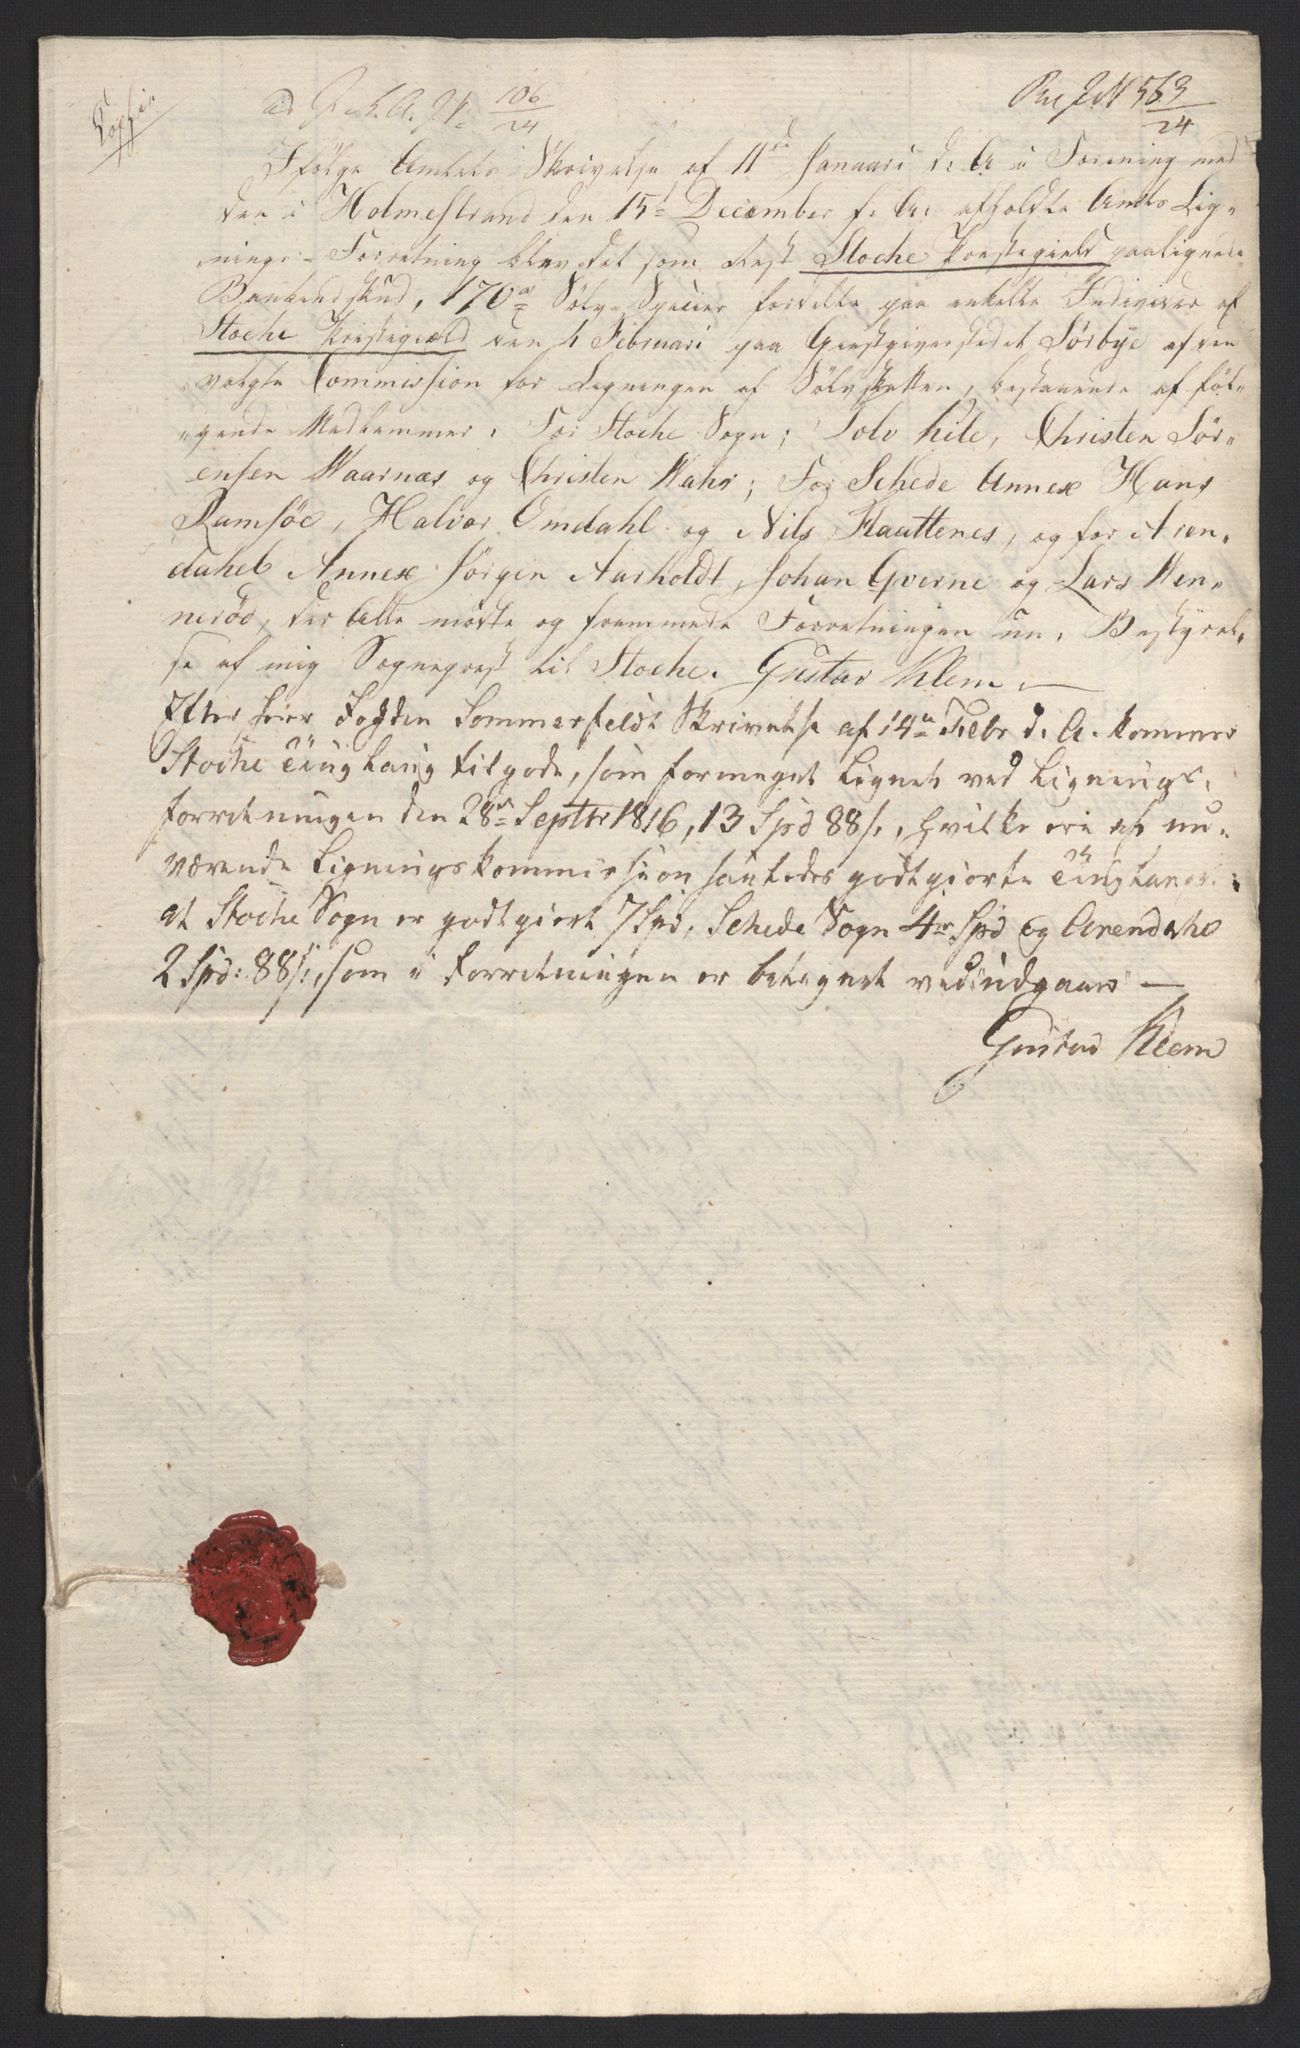 Copie
ad 106/24
563/24
Ifølge Amtets Skrivelse af 11te Januari d: A: i Forening med
den i Holmestrand den 15de December f: A: afholdte Amts Lig-
nings-Forretning blev det som Rest Stoche Præstegield paalignede
170 Sølv-Specier fordelte paa enkelte Individer af
Stoche Præstegiæld den 4 Februari paa Giestgiverstedet Sørbye af den
valgte Commission for Ligningen af Sølvskatten, bestaaende af føl-
gende Medlemmer, For Stoche Sogn; Tolv Kile, Christen Sør-
ensen Waarnæs og Christen Wahr; For Schede Annex Hans
Ramsøe, Halvor Omdahl og Nils Flaattenes, og for Aren-
dahel Annex Jørgen Aarholdt, Johan Gverne og Lars Wen-
nerød, der Alle mødte og fremmede Forretningen un. Bestyrel-
se af mig Sognepræst til Stoche. Gustav Klem
Efter Herr Fogden Sommerfeldt Skrivelse af 14de Febr d. A. kommer
Stoche Tinglaug tilgode, som formeget Lignet ved Lignings-
forretningen den 28de Septbr 1816, 13 Spd 88 s., hvilke ere af nu-
værende Ligningskommission saaledes godtgiorte Tinglauget:
at Stoche Sogn er godtgiort 7 Spd, Schede Sogn 4re Spd og Arendahl
2 Spd: 88 s., som i Forretningen er betegnet ved "udgaaer" —
Gustav Klem